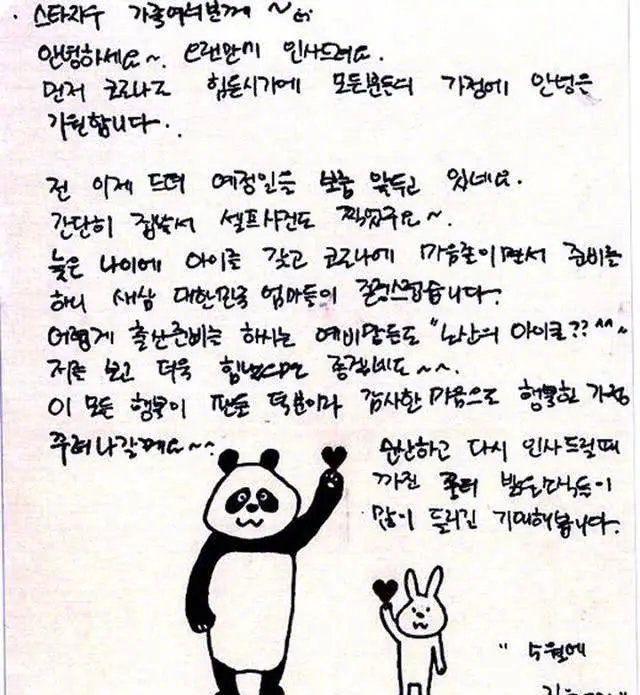 · 스타자수 가족여러분께 ~
안녕하세요~. 오랜만에 인사드려요.
먼저 코로나로 힘든시기에 모든분들의 가정에 안녕을
기원합니다..
전 이제 드뎌 예정일을 보름 앞두고 있네요.
간단히 집밖서 셀프사진도 찍었구요~.
늦은 나이에 아이를 갖고 코로나에 마음졸이면서 준비를
하니 새삼 대한민국 엄마들이 존경스럽습니다.
어렵게 출산준비를 하시는 예비맘들도 "노산의 아이콘?? ^^~
저를 보고 더욱 힘냈으면 좋겠네요~~.
이 모든 행복이 팬들 덕분이라 감사한 마음으로 행복한 가정
꾸려나갈께요~~
순산하고 다시 인사드릴때
까진 좋은 소식들이
많이 들리길 기대해봅니다.
" 5월에